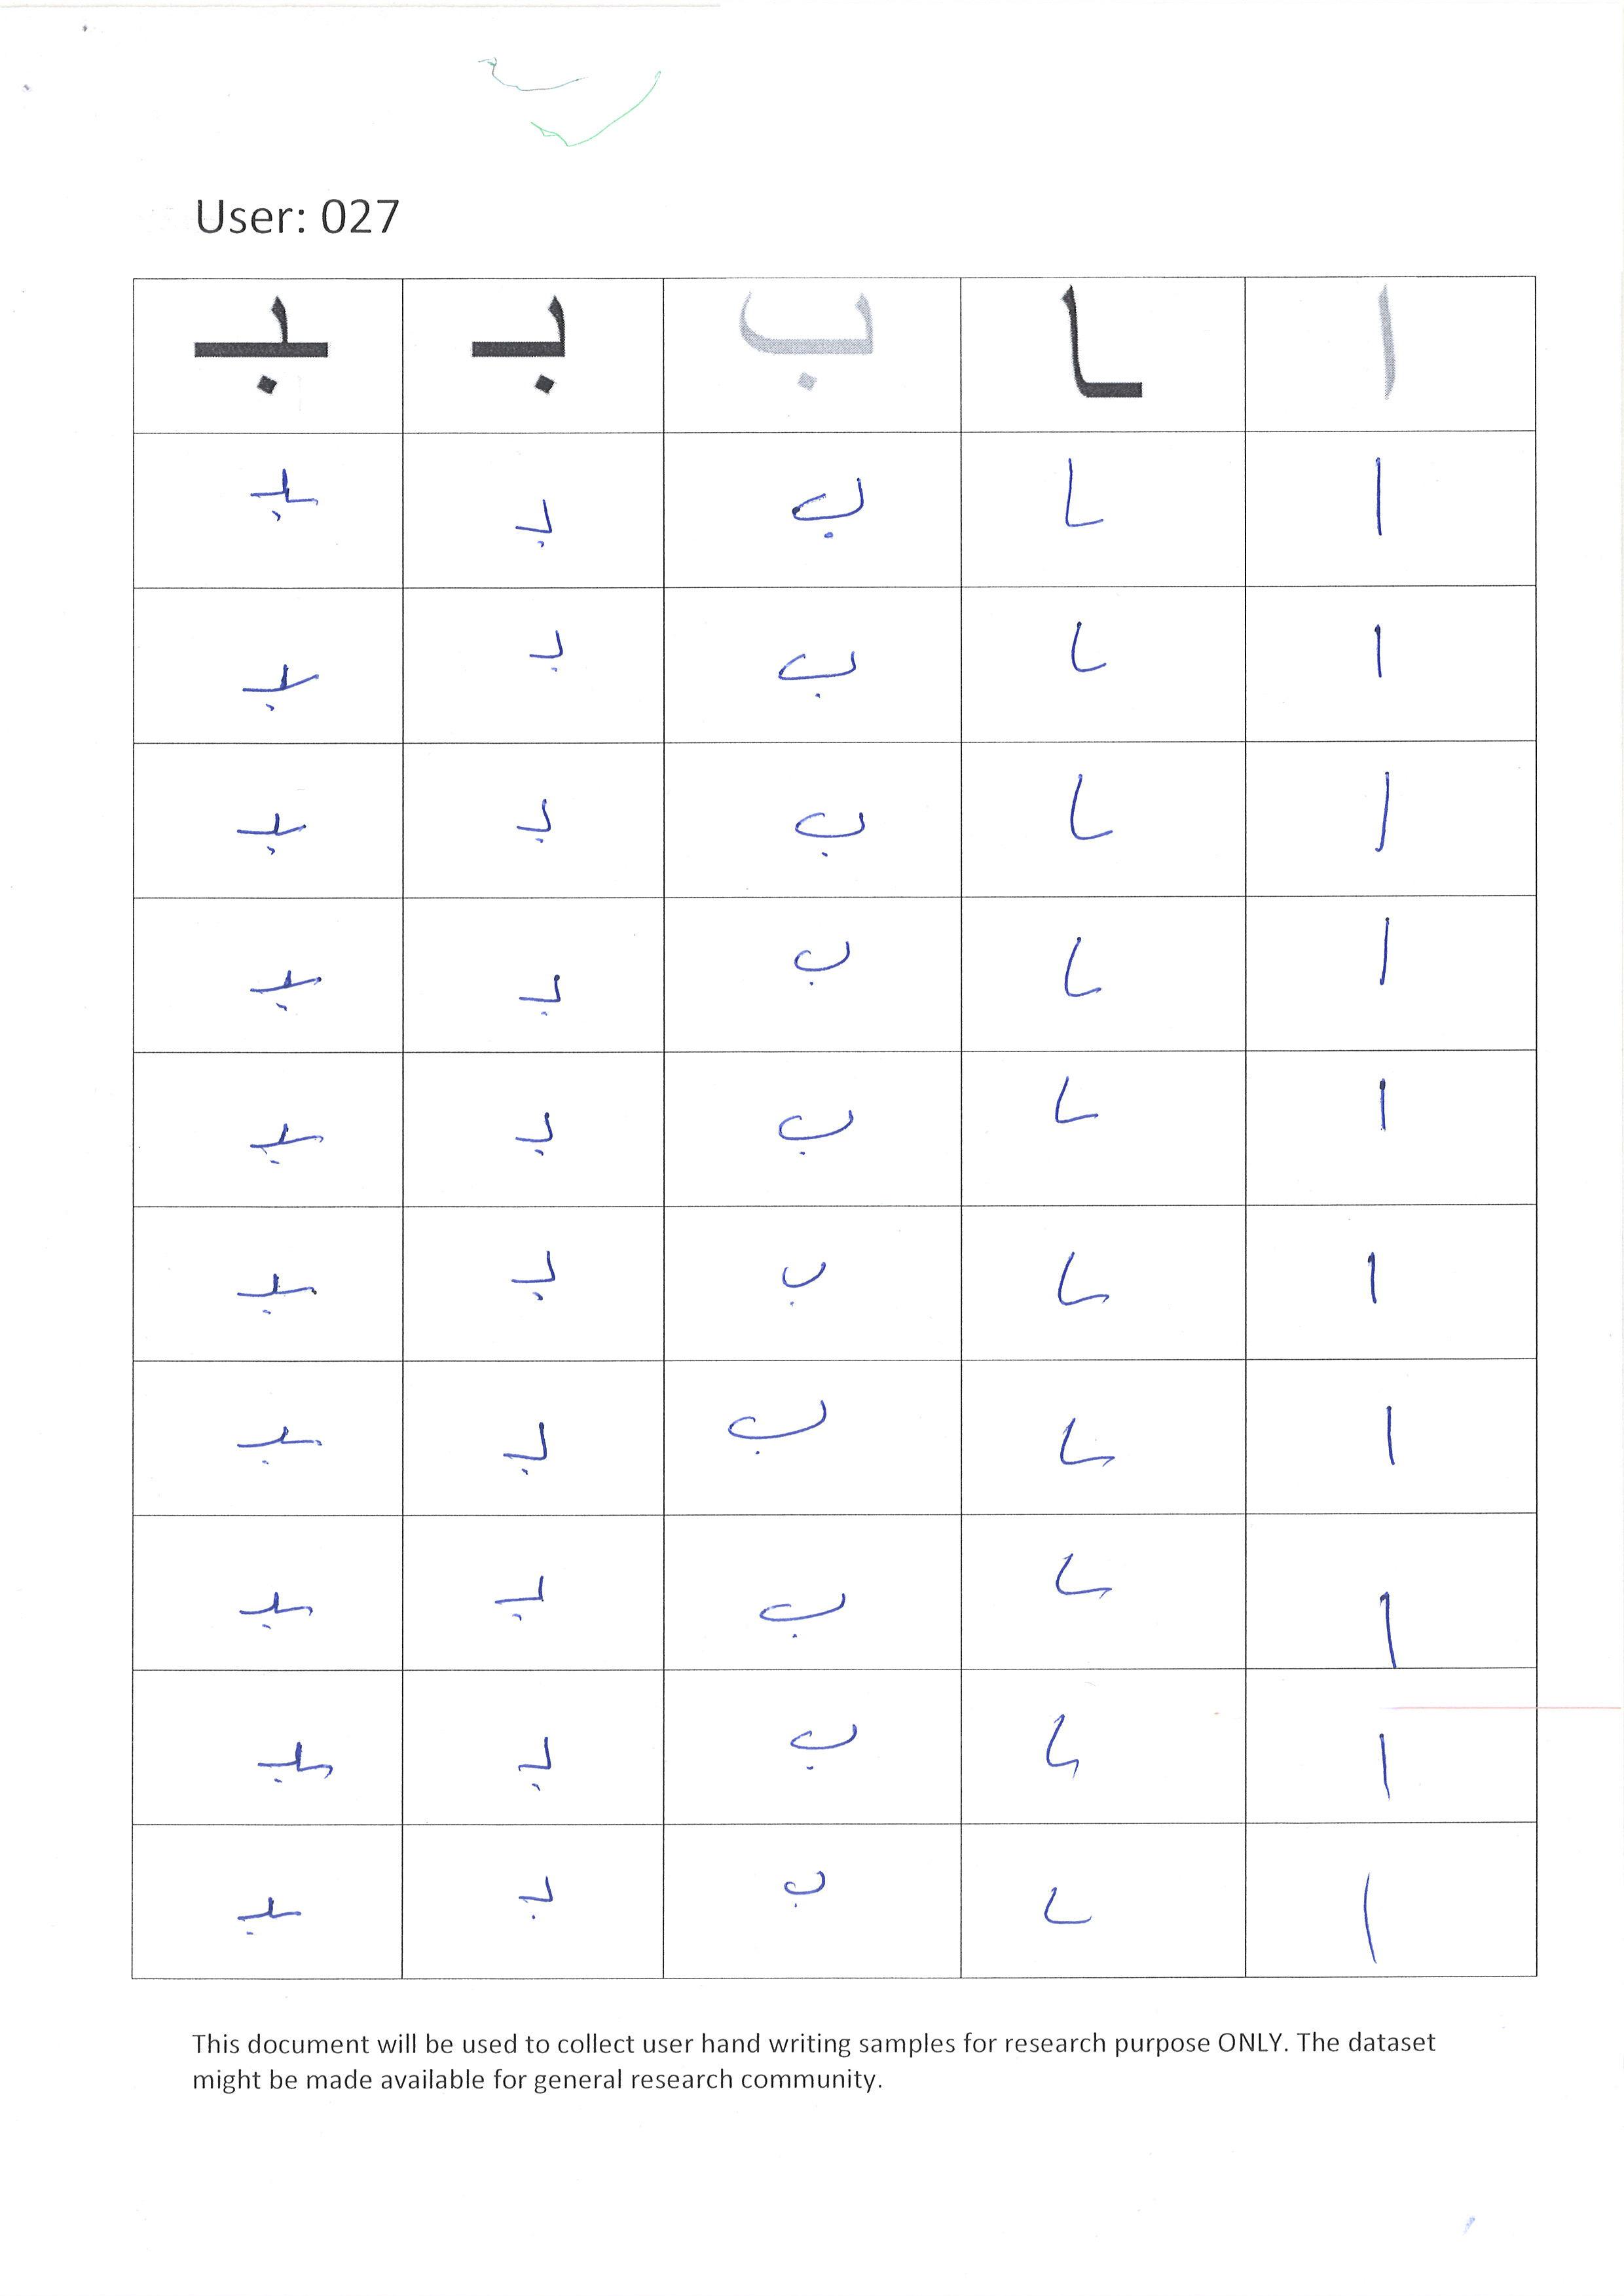 User: 027
ا ـا ب بـ ـبـ
ا ـا ب بـ ـبـ
ا ـا ب بـ ـبـ
ا ـا ب بـ ـبـ
ا ـا ب بـ ـبـ
ا ـا ب بـ ـبـ
ا ـا ب بـ ـبـ
ا ـا ب بـ ـبـ
ا ـا ب بـ ـبـ
ا ـا ب بـ ـبـ
ا ـا ب بـ ـبـ
This document will be used to collect user hand writing samples for research purpose ONLY. The dataset
might be made available for general research community.